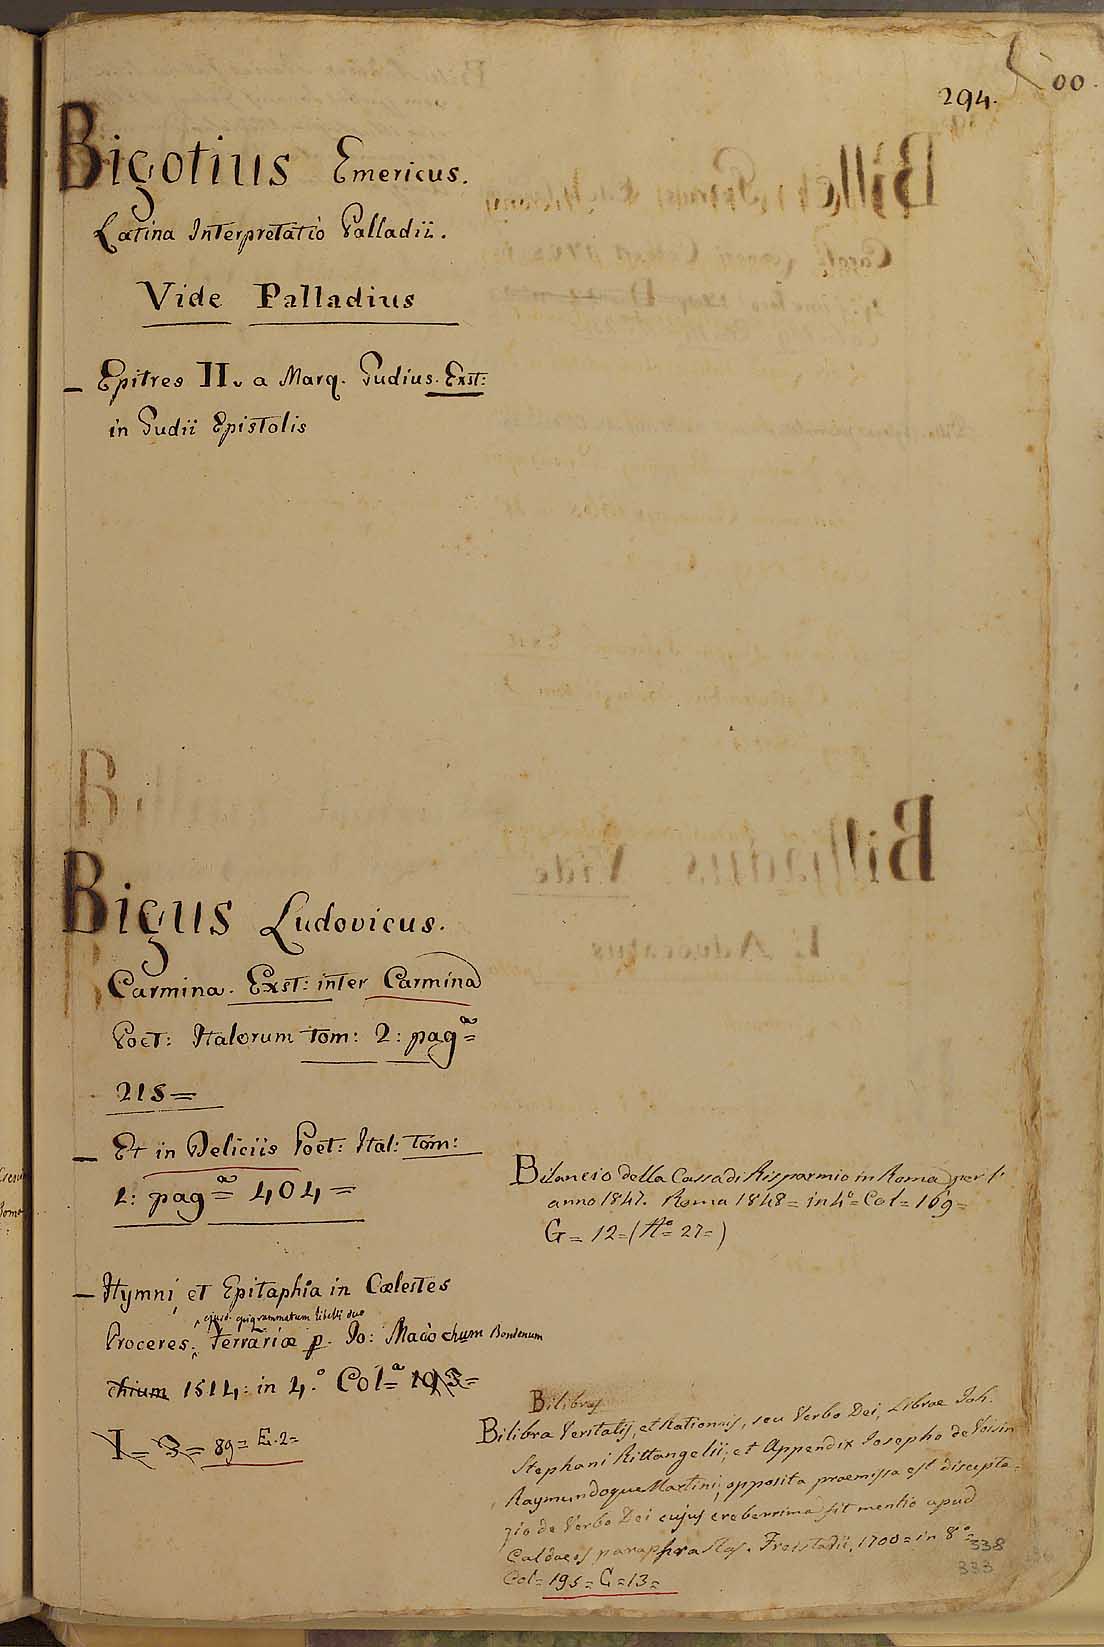 294.
500.
Bigotius Emericus.
Latina Interpretatio Palladii.
Vide Palladius
— Epitres II. a Marq. Gudius. Exst:
in Gudii Epistolis
Bigus Ludovicus.
Carmina. Exst: inter Carmina
Poet: Italorum tom: 2: pagª=
215=
— Et in Deliciis Poet: Ital: tom:
1: pagª= 404=
— Hymni, et Epitaphia in Cœlestes
ejusd. epigrammatum libelli duo
Proceres. Ferrariæ p. Io: Maciochum Bondenum
chium 1514: in 4.° Colª= 193=
I= 3= 89= E.2=
Bilancio della Cassa di Risparmio in Roma per l'
anno 1847. Roma 1848= in 4°= Col= 169=
G= 12=(N°= 27=)
Bilibras
Bilibra Veritatis, et Rationis, seu Verbo Dei, Librae Joh.
Stephani Rittangelii; et Appendix Josepho de Voisin
Raymundoque Martini; opposita praemissa est discepta=
zio de Verbo Dei cujus creberrima fit mentio apud
Caldaeos paraphrastas. Freistadii, 1700= in 8°=
Col= 195= G=13=
338
333